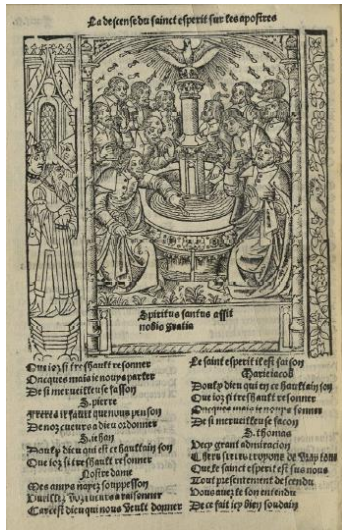 La descense du sainct esperit sur les apostres
Spiritus santus assit
nobis gratia
Que ioz si treshault resonner
Oncques mais ie nouys parler
De si merueilleuse fasson
S. pierre
Freres il fault que nous pensson
De noz cueurs a dieu ordonner
S. iehan
Doulx dieu qui est ce haultain son
Que ioz si treshault resonner
Nostre dame
Mes amys nayez souppesson
Vueillez voz cueurs a raisonner
Car cest dieu qui nous veult donner
Le saint esperit il est sai son
Marie iacob
Doulx dieu qui en ce haultain son
Que ioz si treshault resonner
Oncques mais ie nouys sonner
De si merueilleuse facon
S. thomas
Vecy grant admiracion
Que le sainct esperit est sus nous
Tout presentement descendu
Vous auez le son entendu
De ce fait icy bien soudain